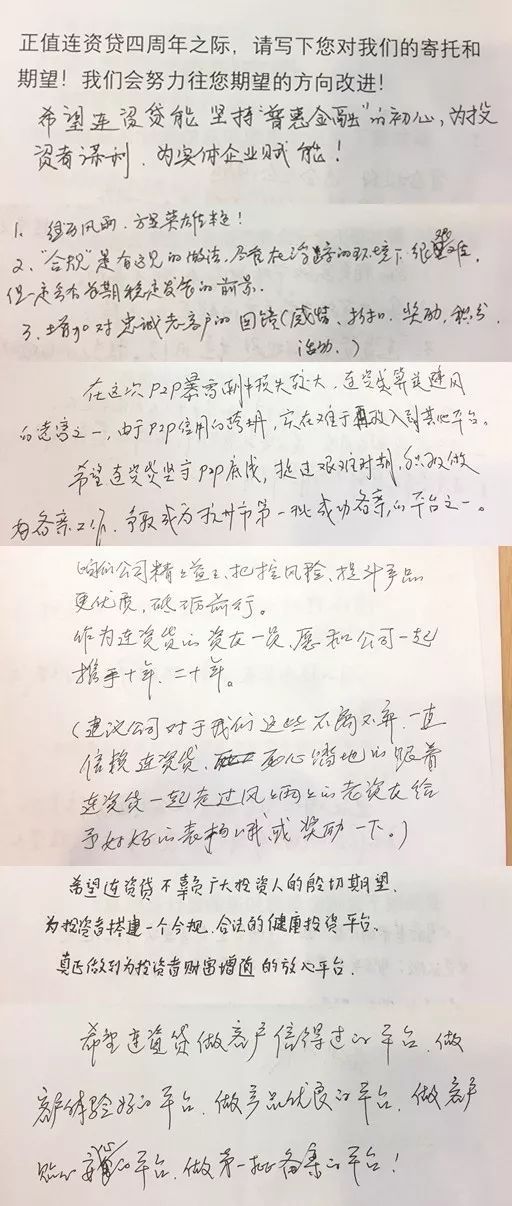 正值连资贷四周年之际，请写下您对我们的寄托和
期望！我们会努力往您期望的方向改进！
希望连资贷能坚持“普惠金融”的初心，为投
资者谋利，为实体企业赋能！
1、经历风雨，方显英雄本色！
2、“合规”是有远见的做法，尽管在浮躁的环境下很艰难，
但一定会有长期稳定发展的前景。
3、增加对忠诚老客户的回馈（感情、折扣、奖励、积分、
活动、）
在这次P2P暴雷潮中损失较大，连资贷算是避风
的港湾之一，由于P2P信用的垮塌，实在难于再投入到其他平台。
希望连资贷坚守P2P底线，挺过艰难时期，积极做
好备案工作，争取成为杭州市第一批成功备案的平台之一。
公司精益求精、把控风险、提升产品
更优质，砥砺前行。
作为连资贷的资友一员，愿和公司一起
携手十年、二十年。
（建议公司对于我们这些不离不弃、一直
信赖连资贷、死心踏地的跟着
连资贷一起走过风风雨雨的老资友给
予好好的表扬哦，或奖励一下。）
希望连资贷不辜负广大投资人的殷切期望，
为投资者搭建一个合规、合法的健康投资平台，
真正做到为投资者财富增值的放心平台。
希望连资贷做客户信得过的平台、做
客户体验好的平台、做产品优良的平台、做客户
贴心的平台、做第一批备案的平台！